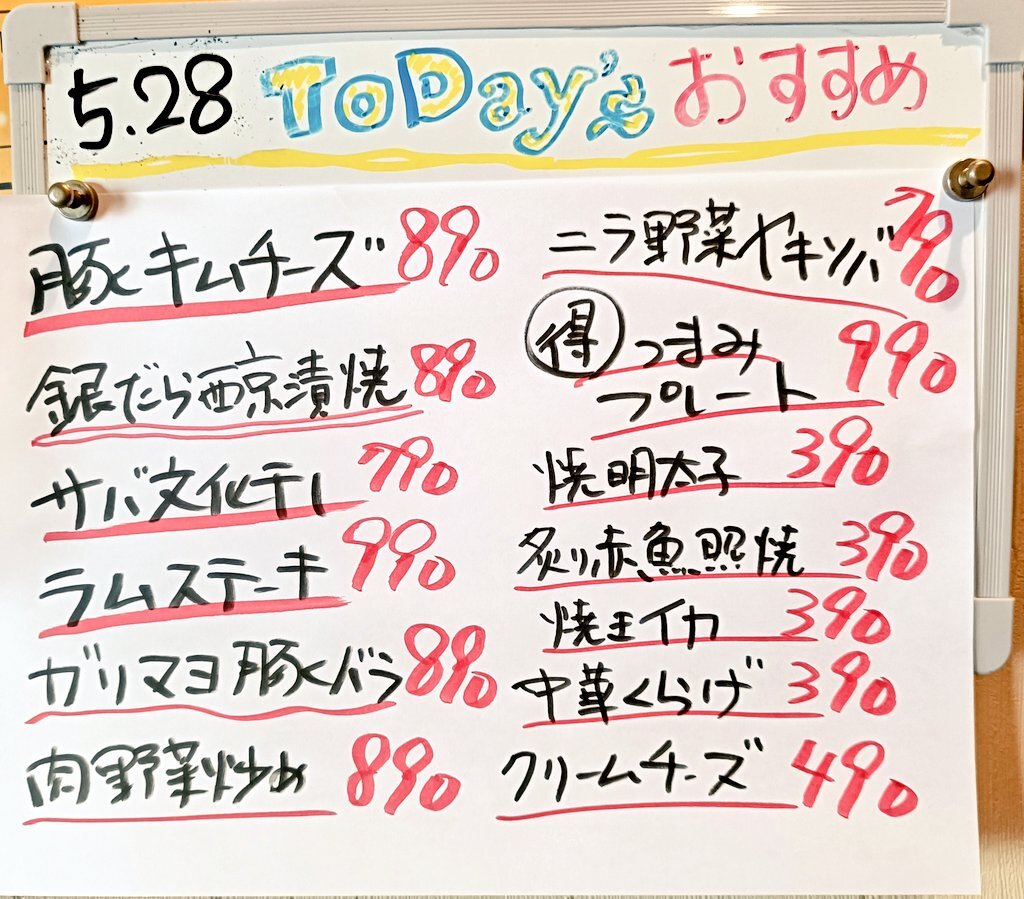 5.28 ToDay's おすすめ
豚キムチーズ 890
銀だら西京漬焼 890
サバ文化干し 790
ラムステーキ 990
ガリマヨ豚バラ 890
肉野菜炒め 890
ニラ野菜ヤキソバ 790
得 つまみ 990
プレート
焼明太子 390
炙り赤魚照焼 390
焼玉イカ 390
中華くらげ 390
クリームチーズ 490